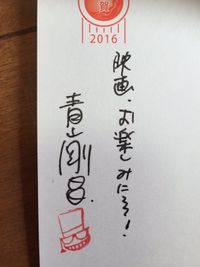 2016
映画、お楽しみにネ!
青山剛昌